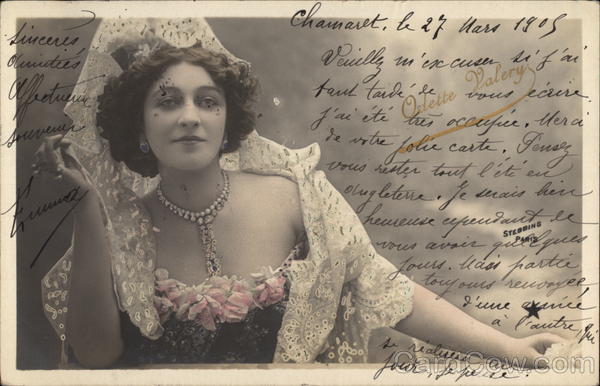 Chamaret, le 27 Mars 1905
Veuillez m'excuser si j'ai
tant tardé de vous écrire
j'ai été très occupée. Merci
de votre jolie carte. Pensez
vous rester tout l'été en
Angleterre. Je serais bien
heureuse cependant de
vous avoir quelques
jours. Mais partie
toujours renvoyée,
d'une année
à l'autre,
se réalisera un
jour je pense.
sincères
amitiés
affectueux
souvenir
Emma
Odette Valery
STEBBING
PARIS
CardCow.com